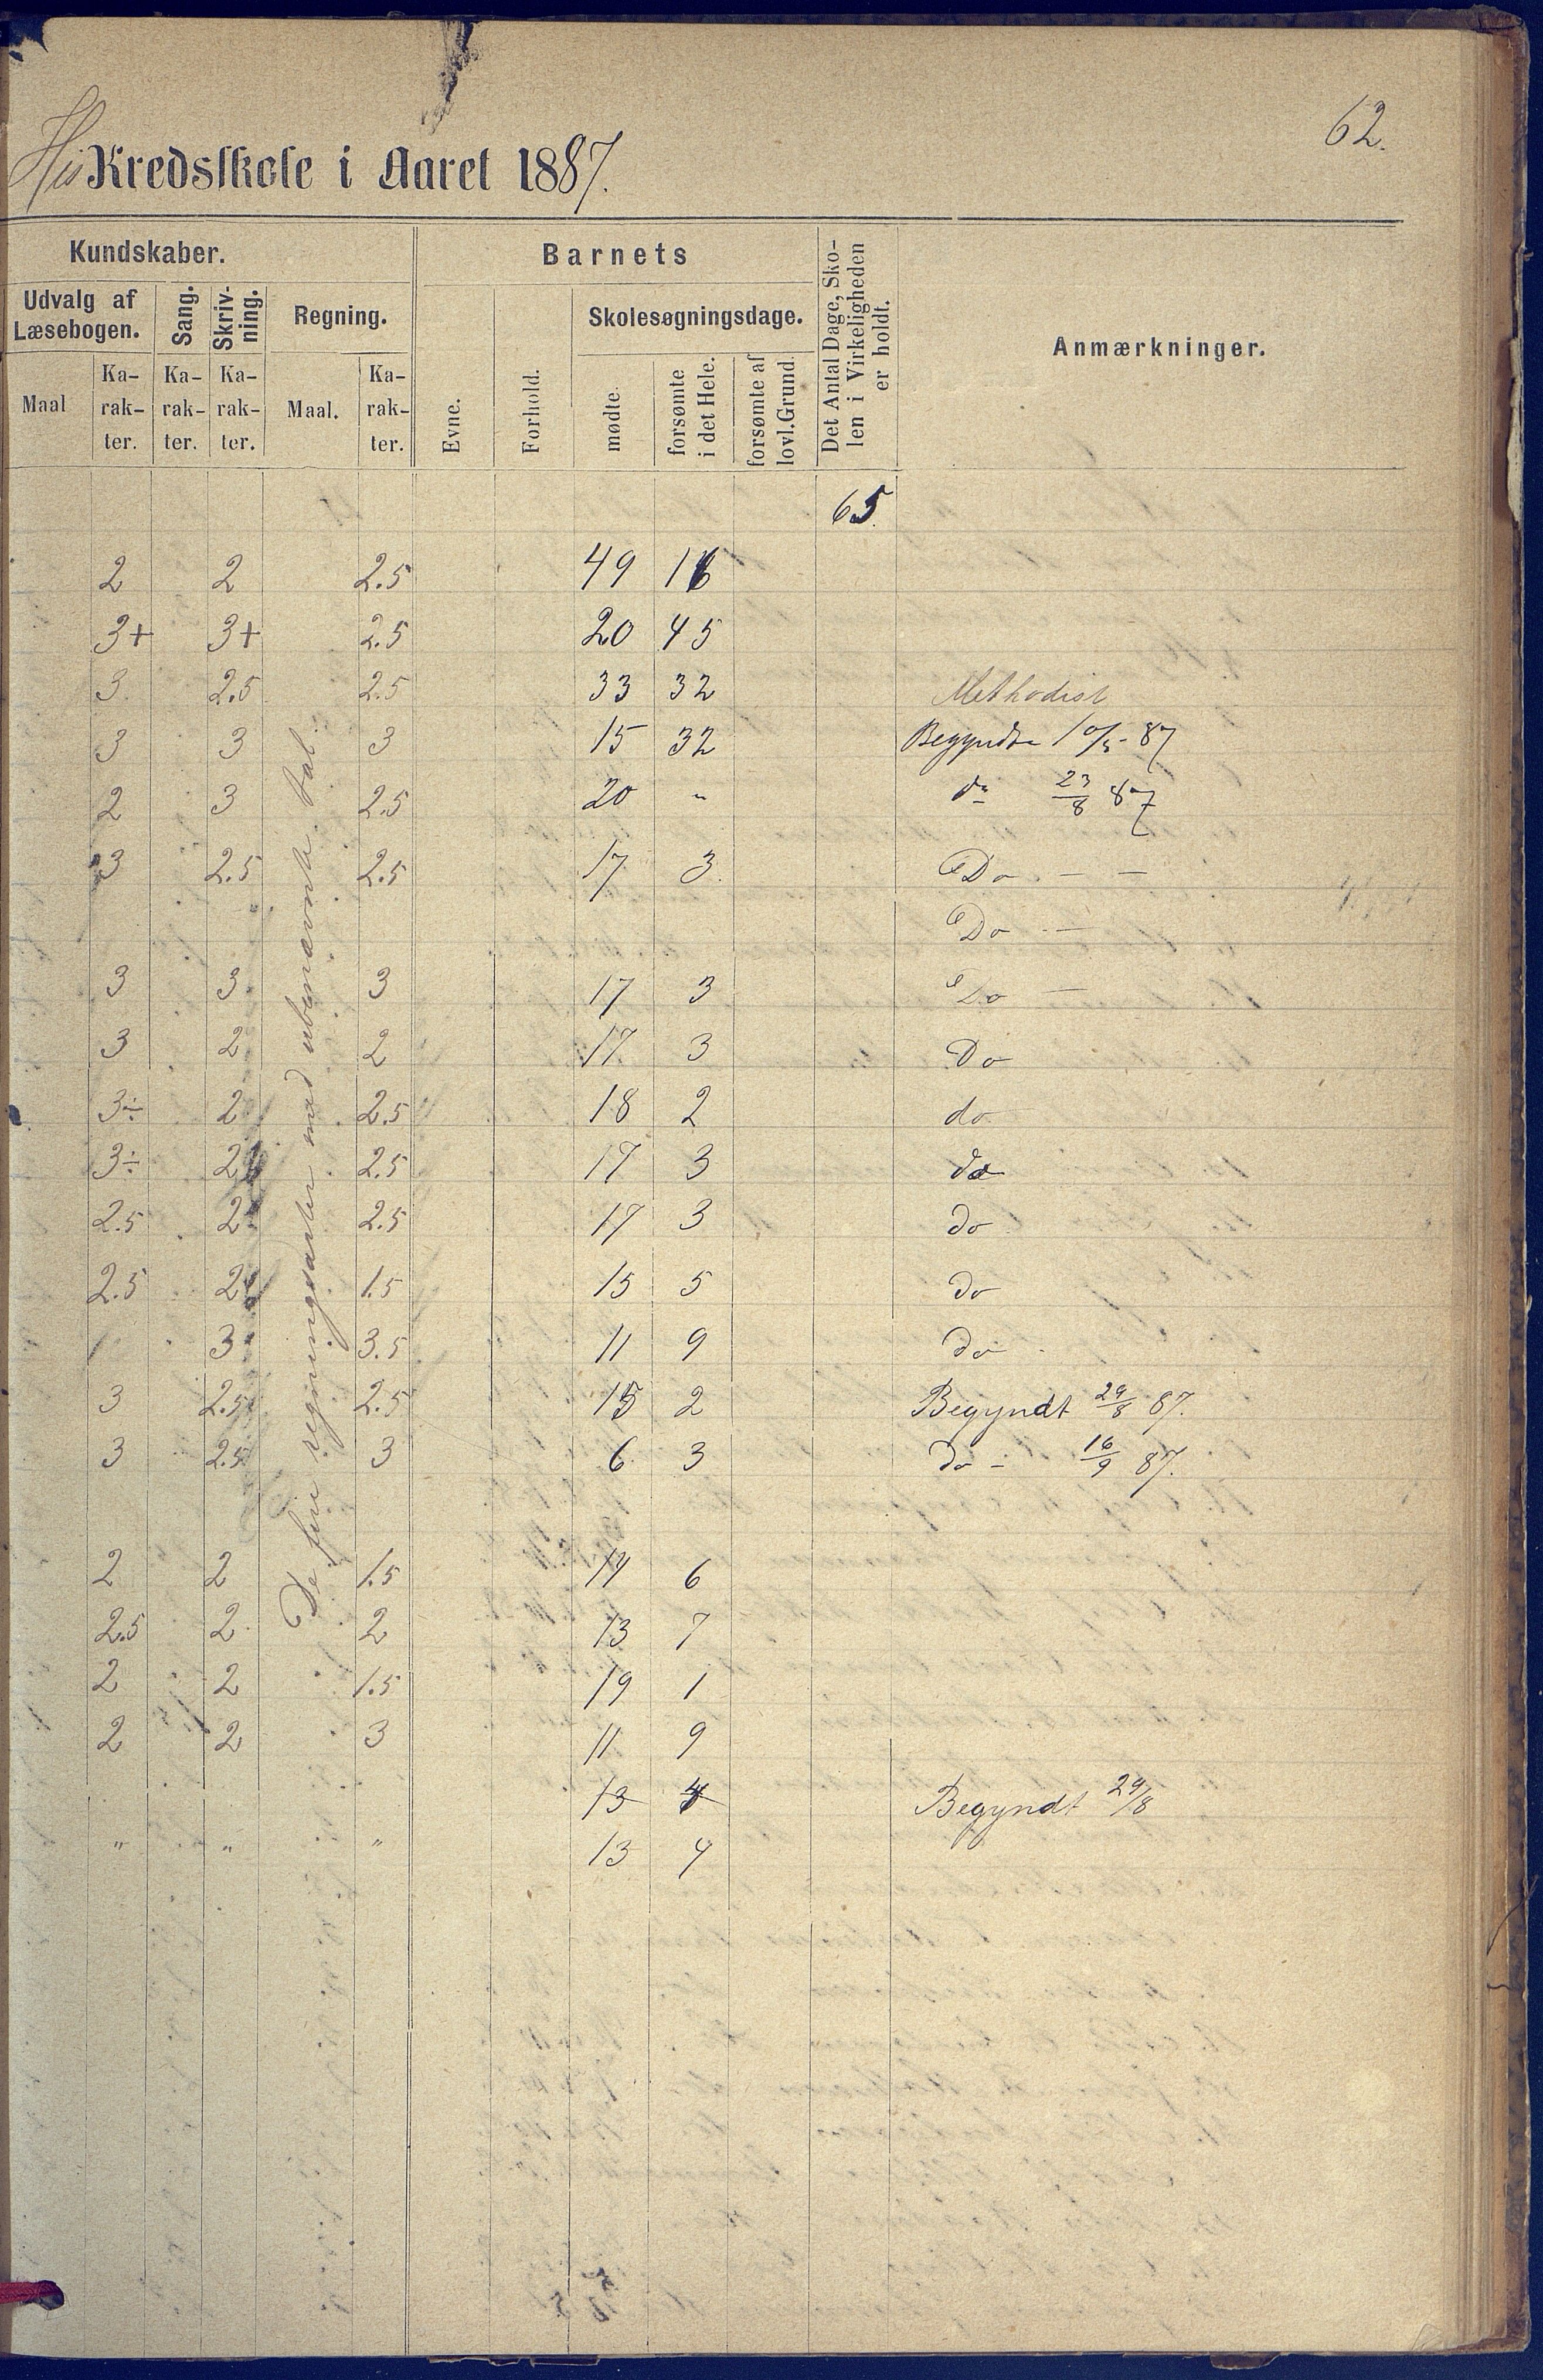 62.
His Kredsskole i Aaret 1887.
Kundskaber. Barnets Det Antal Dage, Sko- len i Virkeligheden er holdt. Anmærkninger.
Udvalg af Læsebogen. Sang. Skriv- ning. Regning. Evne. Forhold. Skolesøgningsdage.
Maal Ka- rak- ter. Ka- rak- ter. Ka- rak- ter. Maal. Ka- rak- ter. mødte. forsømte i det Hele. forsømte af lovl. Grund.
65.
2 2 2.5 49 16
3+ 3+ 2.5 20 45
3 2.5 2.5 33 32 Methodist
3 3 3 15 32 Begyndte 10/5 - 87
2 3 2.5 20 " do 23/8 87
3 2.5 2.5 17 3. Do - —
Do —
3 3 3 17 3 Do —
3 2 2 17 3 Do
3÷ 2 2.5 18 2 do
3÷ 2 2.5 17 3 do
2.5 2 2.5 17 3 do
2.5 2 1.5 15 5 do
3 3.5 11 9 do
3 2.5 2.5 15 2 Begyndt 29/8 87.
3 2.5 3 6 3 do - 16/9 87.
2 2 1.5 14 6
2.5 2 2 13 7
2 2 1.5 19 1
2 2 3 11 9
13 4 Begyndt 29/8
" " " 13 4
De fire regningsarter med ubenævnte tal.